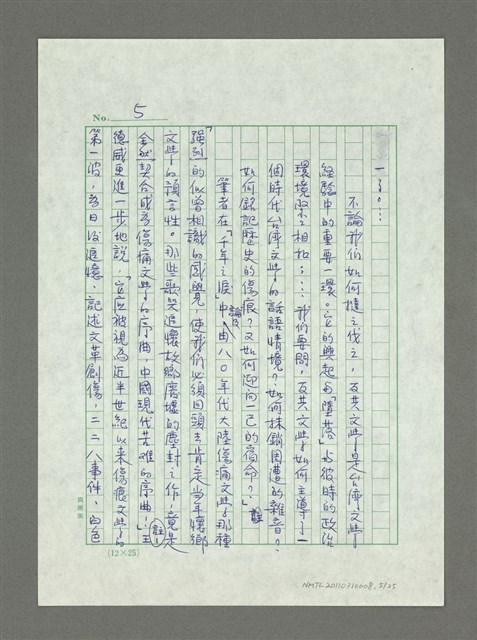 No. 5
一三○…
不論我們如何撻之伐之，反共文學是台灣文學
經驗中的重要一環。它的興起與「墮落」與彼時的政治
環境緊相扣；…我們要問，反共文學如何主導了一
個時代台灣文學的話語情境？如何抹銷周遭的雜音？
如何銘記歷史的傷痕？又如何迎向一己的宿命？」註
筆者在「千年之淚」中論及，由八○年代大陸傷痕文學「那種
強烈的似曾相識的感覺，使我們必須回頭去肯定當年懷鄉
文學的預言性。那些歌哭追懷故鄉廢墟的塵封之作，竟是
全然契合成為傷痛文學的序曲，中國現代苦難的序曲！」註1王
德威更進一步地說，「它應被視為近半世紀以來傷痕文學的
第一波，為日後追憶，記述文革創傷，二二八事件，白色
(12×25)
NMTL20110310008, 5/25